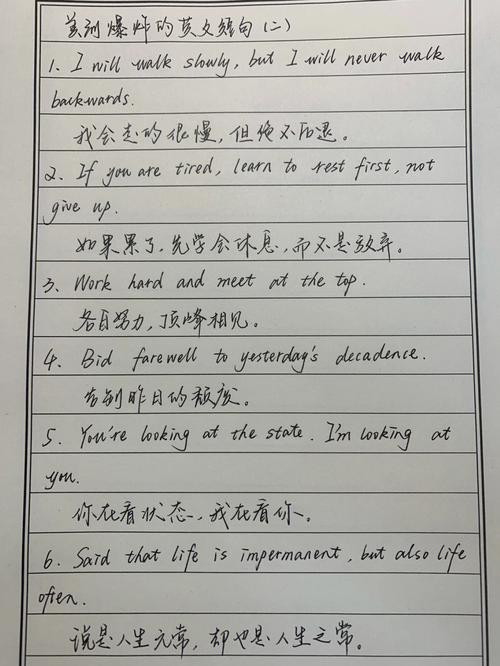 美到爆炸的英文短句(二)
1、I will walk slowly, but I will never walk
backwards.
我会走的很慢,但绝不后退。
2、If you are tired, learn to rest first, not
give up.
如果累了,先学会休息,而不是放弃。
3、Work hard and meet at the top.
各自努力,顶峰相见。
4、Bid farewell to yesterday's decadence.
告别昨日的颓废。
5、You're looking at the state. I'm looking at
you.
你在看状态,我在看你。
6、Said that life is impermanent, but also life
often.
说是人生无常,却也是人生之常。